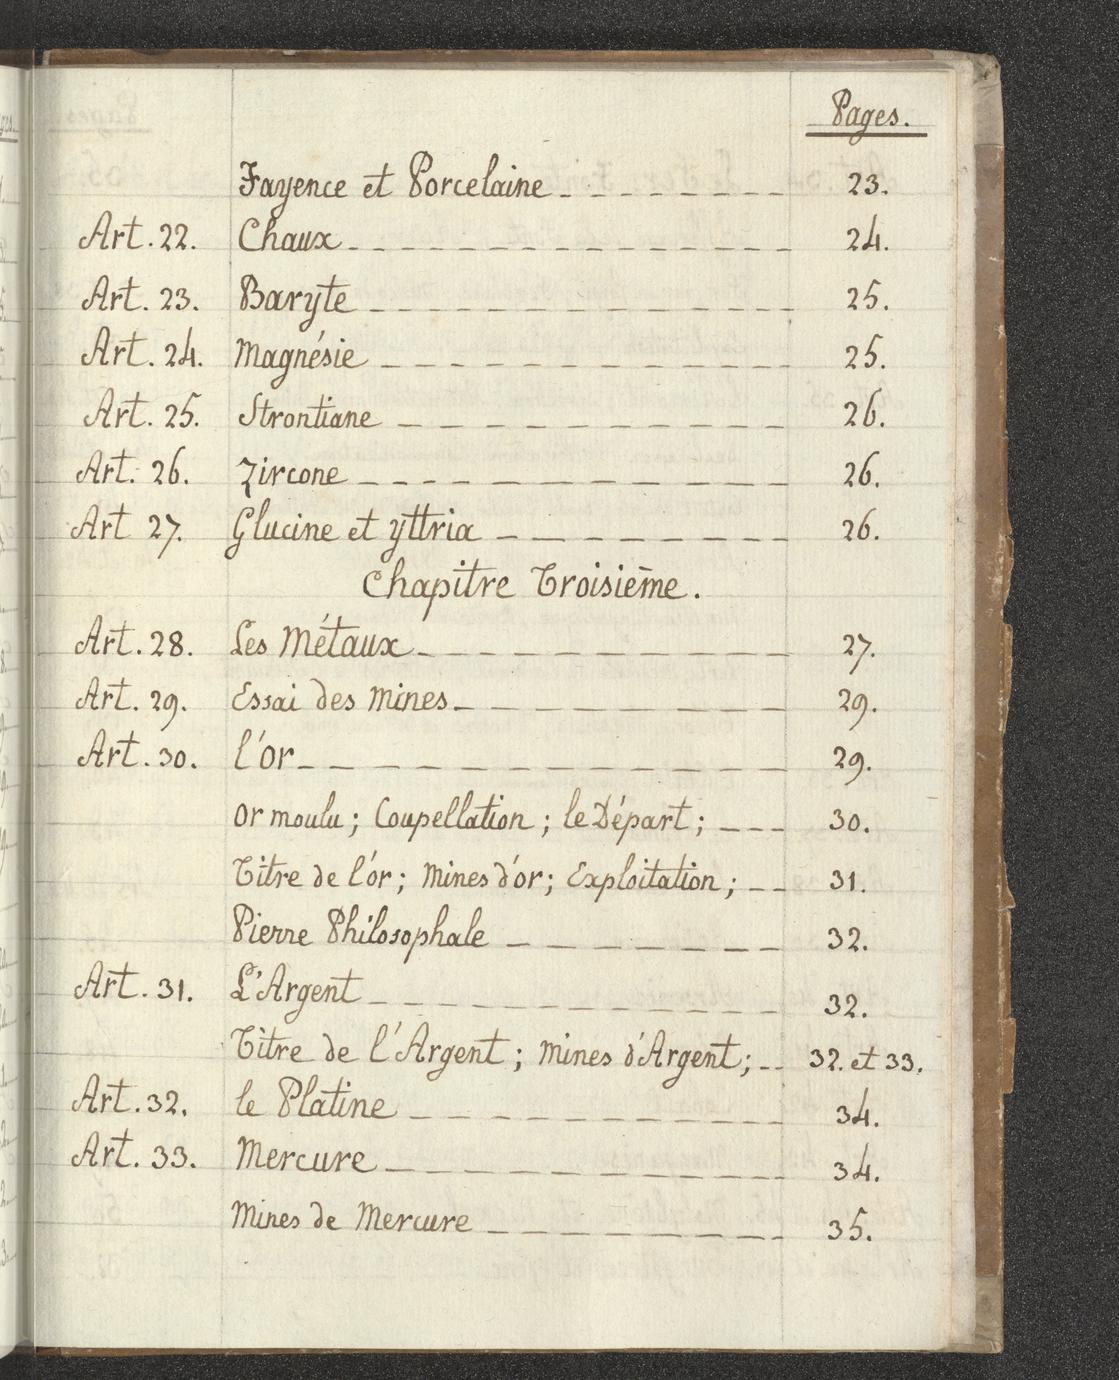 Pages.
Fayence et Porcelaine 23.
Art. 22. Chaux 24.
Art. 23. Baryte 25.
Art. 24. Magnésie 25.
Art. 25. Strontiane 26.
Art. 26. Zircone 26.
Art 27. Glucine et yttria 26.
Chapitre Troisième.
Art. 28. Les Métaux 27.
Art. 29. Essai des Mines 29.
Art. 30. l'or 29.
or moulu; Coupellation; le Départ; 30.
Titre de l'or; Mines d'or; Exploitation; 31.
Pierre Philosophale 32.
Art. 31. L'Argent 32.
Titre de l'Argent; Mines d'Argent; 32. et 33.
Art. 32. le Platine 34.
Art. 33. Mercure 34.
Mines de Mercure 35.